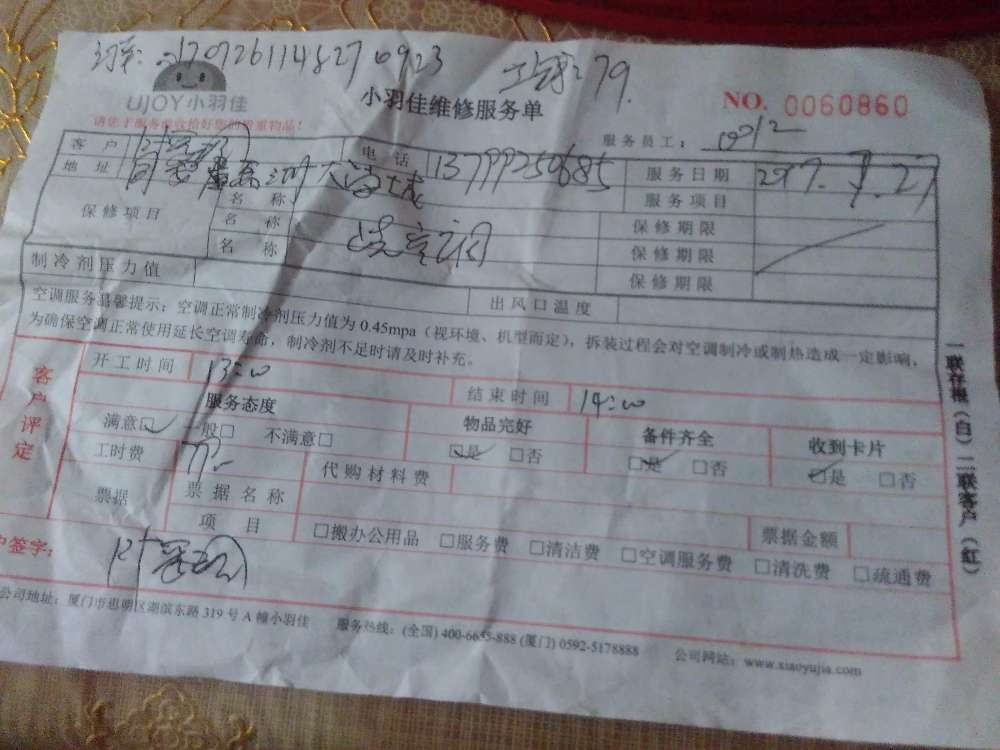 170726114827 0923
79.
UJOY小羽佳
小羽佳维修服务单
NO. 0060860
请您于服务验收拾好您的贵重物品!
服务员工:
客 户
电 话 13799250685
服务日期 2017.7.27
地 址
名 称
服务项目
保修项目
名 称
保修期限
名 称 洗空调
保修期限
制冷剂压力值
保修期限
出风口温度
空调服务温馨提示:空调正常制冷剂压力值为0.45mpa(视环境、机型而定),拆装过程会对空调制冷或制热造成一定影响,
为确保空调正常使用延长空调寿命,制冷剂不足时请及时补充。
客户评定
开工时间 13:00
结束时间 14:00
服务态度
物品完好
备件齐全
收到卡片
满意□ 一般□ 不满意□
□是 □否
□是 □否
□是 □否
工时费
代购材料费
票据
票据名称
票据金额
项 目 □搬办公用品 □服务费 □清洁费 □空调服务费 □清洗费 □疏通费
户签字:
公司地址:厦门市思明区湖滨东路319号A幢小羽佳 服务热线:(全国)400-6655-888(厦门)0592-5178888 公司网站:www.xiaoyujia.com
一联存根(白)二联客户(红)